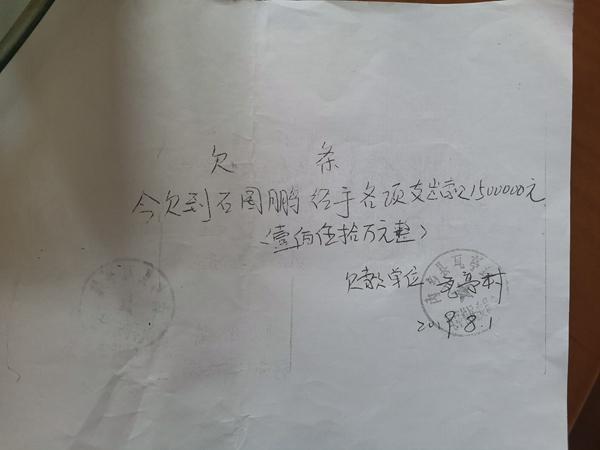 欠 条
今欠到石国鹏经手各项支出款1500000元
(壹佰伍拾万元整)
欠款单位 瓦亭村
2019.8.1